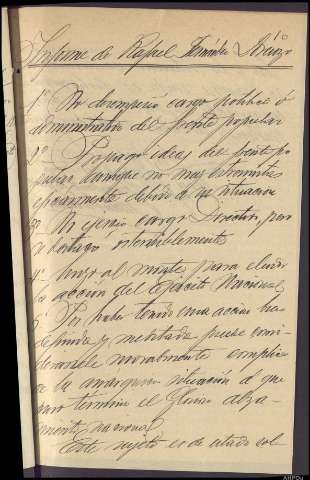 Informe de Rafael Fernández
1º No desempeñó cargo político ó
administrativo del frente popular
2º Propagó ideas del frente po
pular, aunque no mas extremistas
especialmente debido a su situacion
3º No ejerció cargo Directivo, pero
se destacó ostensiblemente
4º huyó al monte para eludir
la acción del Ejército Nacional
5 Por haber tenido una accion tan
definida y meditada puede consi
derarsele moralmente complice
de la situación a que
puso término el Glorioso alza
miento nacional
Este sujeto es de estado sol-
AHPOu